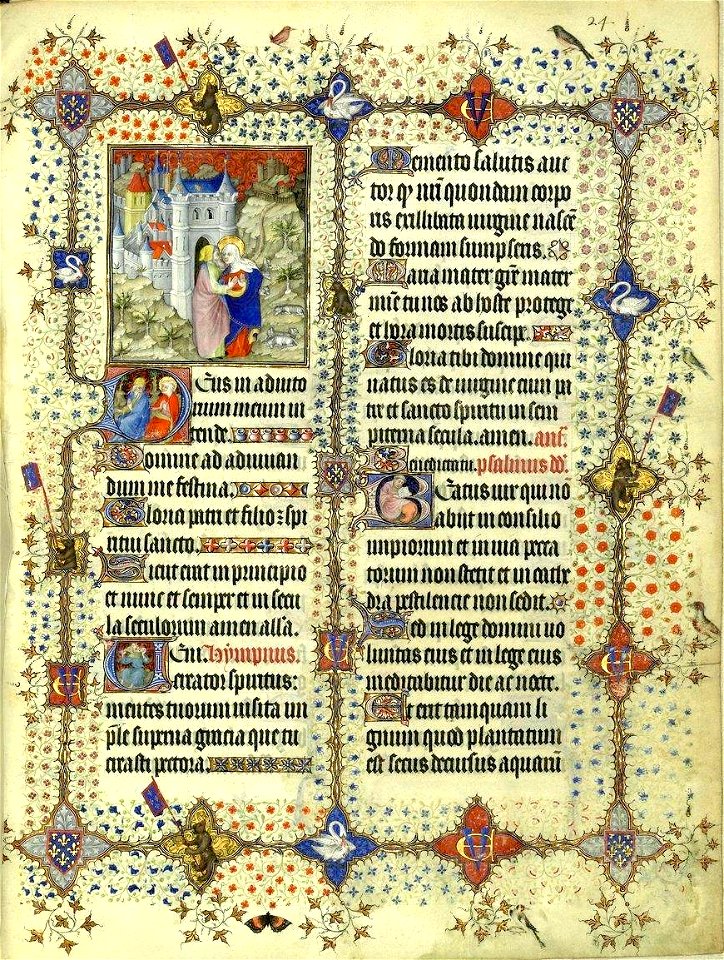 24.
Deus in adiuto
rium meum in
tende.
Domine ad adiuuan
dum me festina.
Gloria patri et filio: et spi
ritui sancto.
Sicut erat in principio
et nunc et semper et in secu
la seculorum amen all'a.
Veni. Hympnus.
Creator spiritus:
mentes tuorum uisita im
ple superna gracia que tu
creasti pectora.
Memento salutis auc
tor q̄ nr̄i quondam corpo
ris exillibata uirgine nascē
do formam sumpseris.
Maria mater gr̄e mater
mīe tu nos ab hoste protege
et hora mortis suscipe.
Gloria tibi domine qui
natus es de uirgine cum pa
tre et sancto spiritu in sem
piterna secula. amen. anſ.
Benedictatu. psalmus dd.
Beatus uir qui nō
abiit in consilio
impiorum et in uia pecca
torum non stetit et in cathe
dra pestilencie non sedit.
Sed in lege domini uo
luntas eius et in lege eius
meditabitur die ac nocte.
Et erit tamquam li
gnum quod plantatum
est secus decursus aquarū